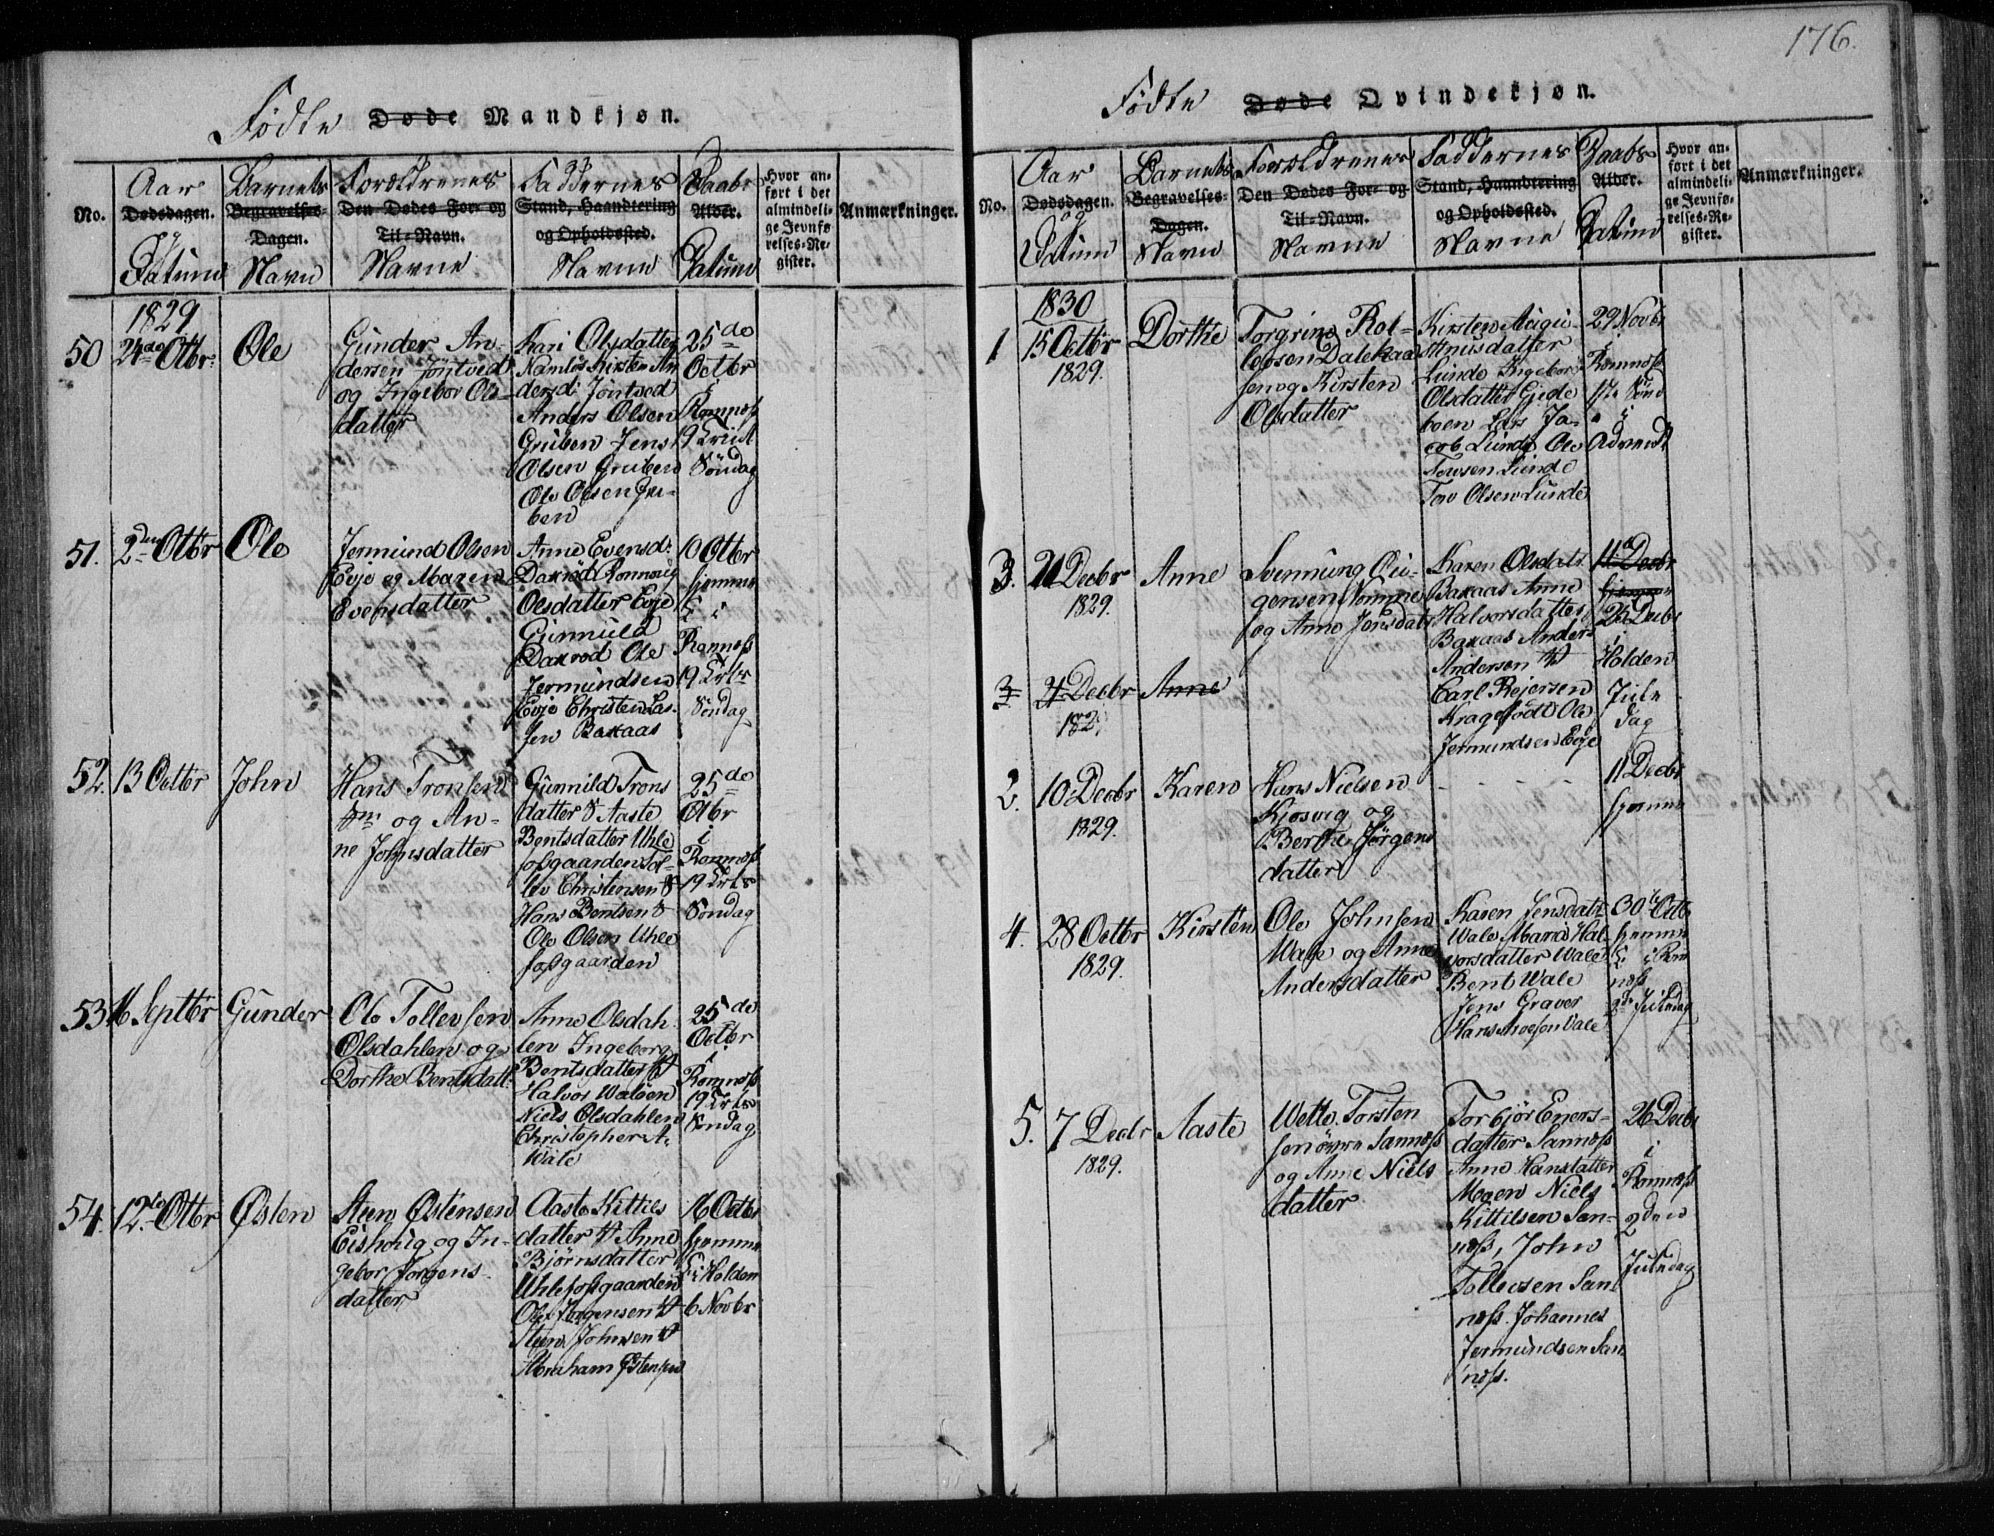 176.
Fødte Døde Mandkjøn.
No.
Aar
Dødsdagen.
og
Datum
Barnets
Begravelses-
Dagen.
Navn
Forældrenes
Den Dødes For- og
Til-Navn.
Navne
Faddernes
Stand, Haandtering
og Opholdssted.
Navne
Daabs
Alder.
Datum
Hvor an-
ført i det
almindeli-
ge Jevnfø-
relses-Re-
gister.
Anmærkninger.
1829
50
24de Otbr.
Ole
Gunder An-
dersen Jøntved
og Ingebor Ols-
datter
Kari Olsdatter
Kirsten An-
dersd: Jøntved
Anders Olsen
Gruben Jens
Olsen Gruben
Ole Olsen Gru-
ben
25de
Octbr
i
Romnæs
19 Trinit
Søndag
51.
2den Otbr
Ole
Jermund Olsen
Evje og Maren
Evensdatter
Anne Evensd:
Daxrød Ronnoug
Olsdatter Evje
Gunnild
Daxrod Ole
Jermundsen
Evje Christen Las-
sen Baxaas
10 Otbr
hjemme
i
Romnæs
19 Tr:
Søndag
52.
13 Octbr
John
Hans Tronsen
og An-
ne Johnsdatter
Gunnild Trons
datter & Aaste
Bentsdatter Uhle
fosgaarden Tol-
lev Christensen &
Hans Bentsen &
Ole Olsen Uhle
fosgaarden
25de
Otbr
i
Romnæs
19 Tr:
Søndag
53
16 Septbr
Gunder
Ole Tollevsen
Olsdahlen og
Dorthe Bentsdatt:
Anne Olsdah-
len Ingeborg
Bentsdatter &
Halvor Waleen
Niels Olsdahlen
Christopher A.
Wale
25de
Octbr
i
Romnæs
19 Tr:
Søndag
54.
12te Otbr
Østen
Steen Østensen
Eishoug og In-
gebor Jørgens-
datter
Aaste Kittils
datter & Anne
Bjørnsdatter
Uhlefosgaarden
Ole Jørgensen &
Steen Johnsen &
Abraham Østensen
16 Octbr
hjemme
i Holden
6 Novbr
Fødte Døde Qvindekjøn.
No.
Aar
Dødsdagen.
og
Datum
Barnets
Begravelses-
Dagen.
Navn
Forældrenes
Den Dødes For- og
Til-Navn.
Navne
Faddernes
Stand, Haandtering
og Opholdssted.
Navne
Daabs
Alder.
Datum
Hvor an-
ført i det
almindeli-
ge Jevnfø-
relses-Re-
gister.
Anmærkninger.
1830
1
15 Octbr
1829.
Dorthe
Torgrim Rol-
lefsen Dalekaa
sen og Kirsten
Olsdatter
Kirsten Augu-
stinusdatter
Lunde Ingebor
Olsdatter Gjide
boen Lars Ja-
cob Lunde Ole
Tovsen Lunde
Tov Olsen Lunde
29 Novbr
i
Romnæs
1ste Sønd
i
Advendt
3.
21 Decbr
1829.
Anne
Svennung
gensen Nomme
og Anne Jensdatt
Karen Olsdatr
Baxaas Anne
Halvorsdatter
Baxaas Anders
Andersen &
Carl Rejersen
Kragefødt Ole
Jermundsen Evje
11 Decbr
hjemme
25 Decbr
i
Holden
Jule
dag
3
21 Decbr
182
Anne
2.
10 Decbr
1829.
Karen
Hans Nielsen
Kjosvig og
Berthe Jørgens
datter
11 Decbr
hjemme
4.
28 Octbr
1829.
Kirsten
Ole Johnsen
Wale og Anne
Andersdatter
Karen Jensdatr
Wale Maren Hal-
vorsdatter Wale
Bent Wale
Jens Graver
Hans Wale
30 Octb
hjemme
i Rom
næs
2den Juledag
5.
7 Decbr
1829.
Aaste
Wetle Torsten
sen øvre Sannæs
og Anne Niels
datter
Torbjør Eners-
datter Sannæs
Anne Hansdatter
Moen Niels
Kittilsen San-
næs, John
Tollevsen San
næs. Johannes
Jermundsen San
næs.
26 Decbr
i
Romnæs
2den
Juledag